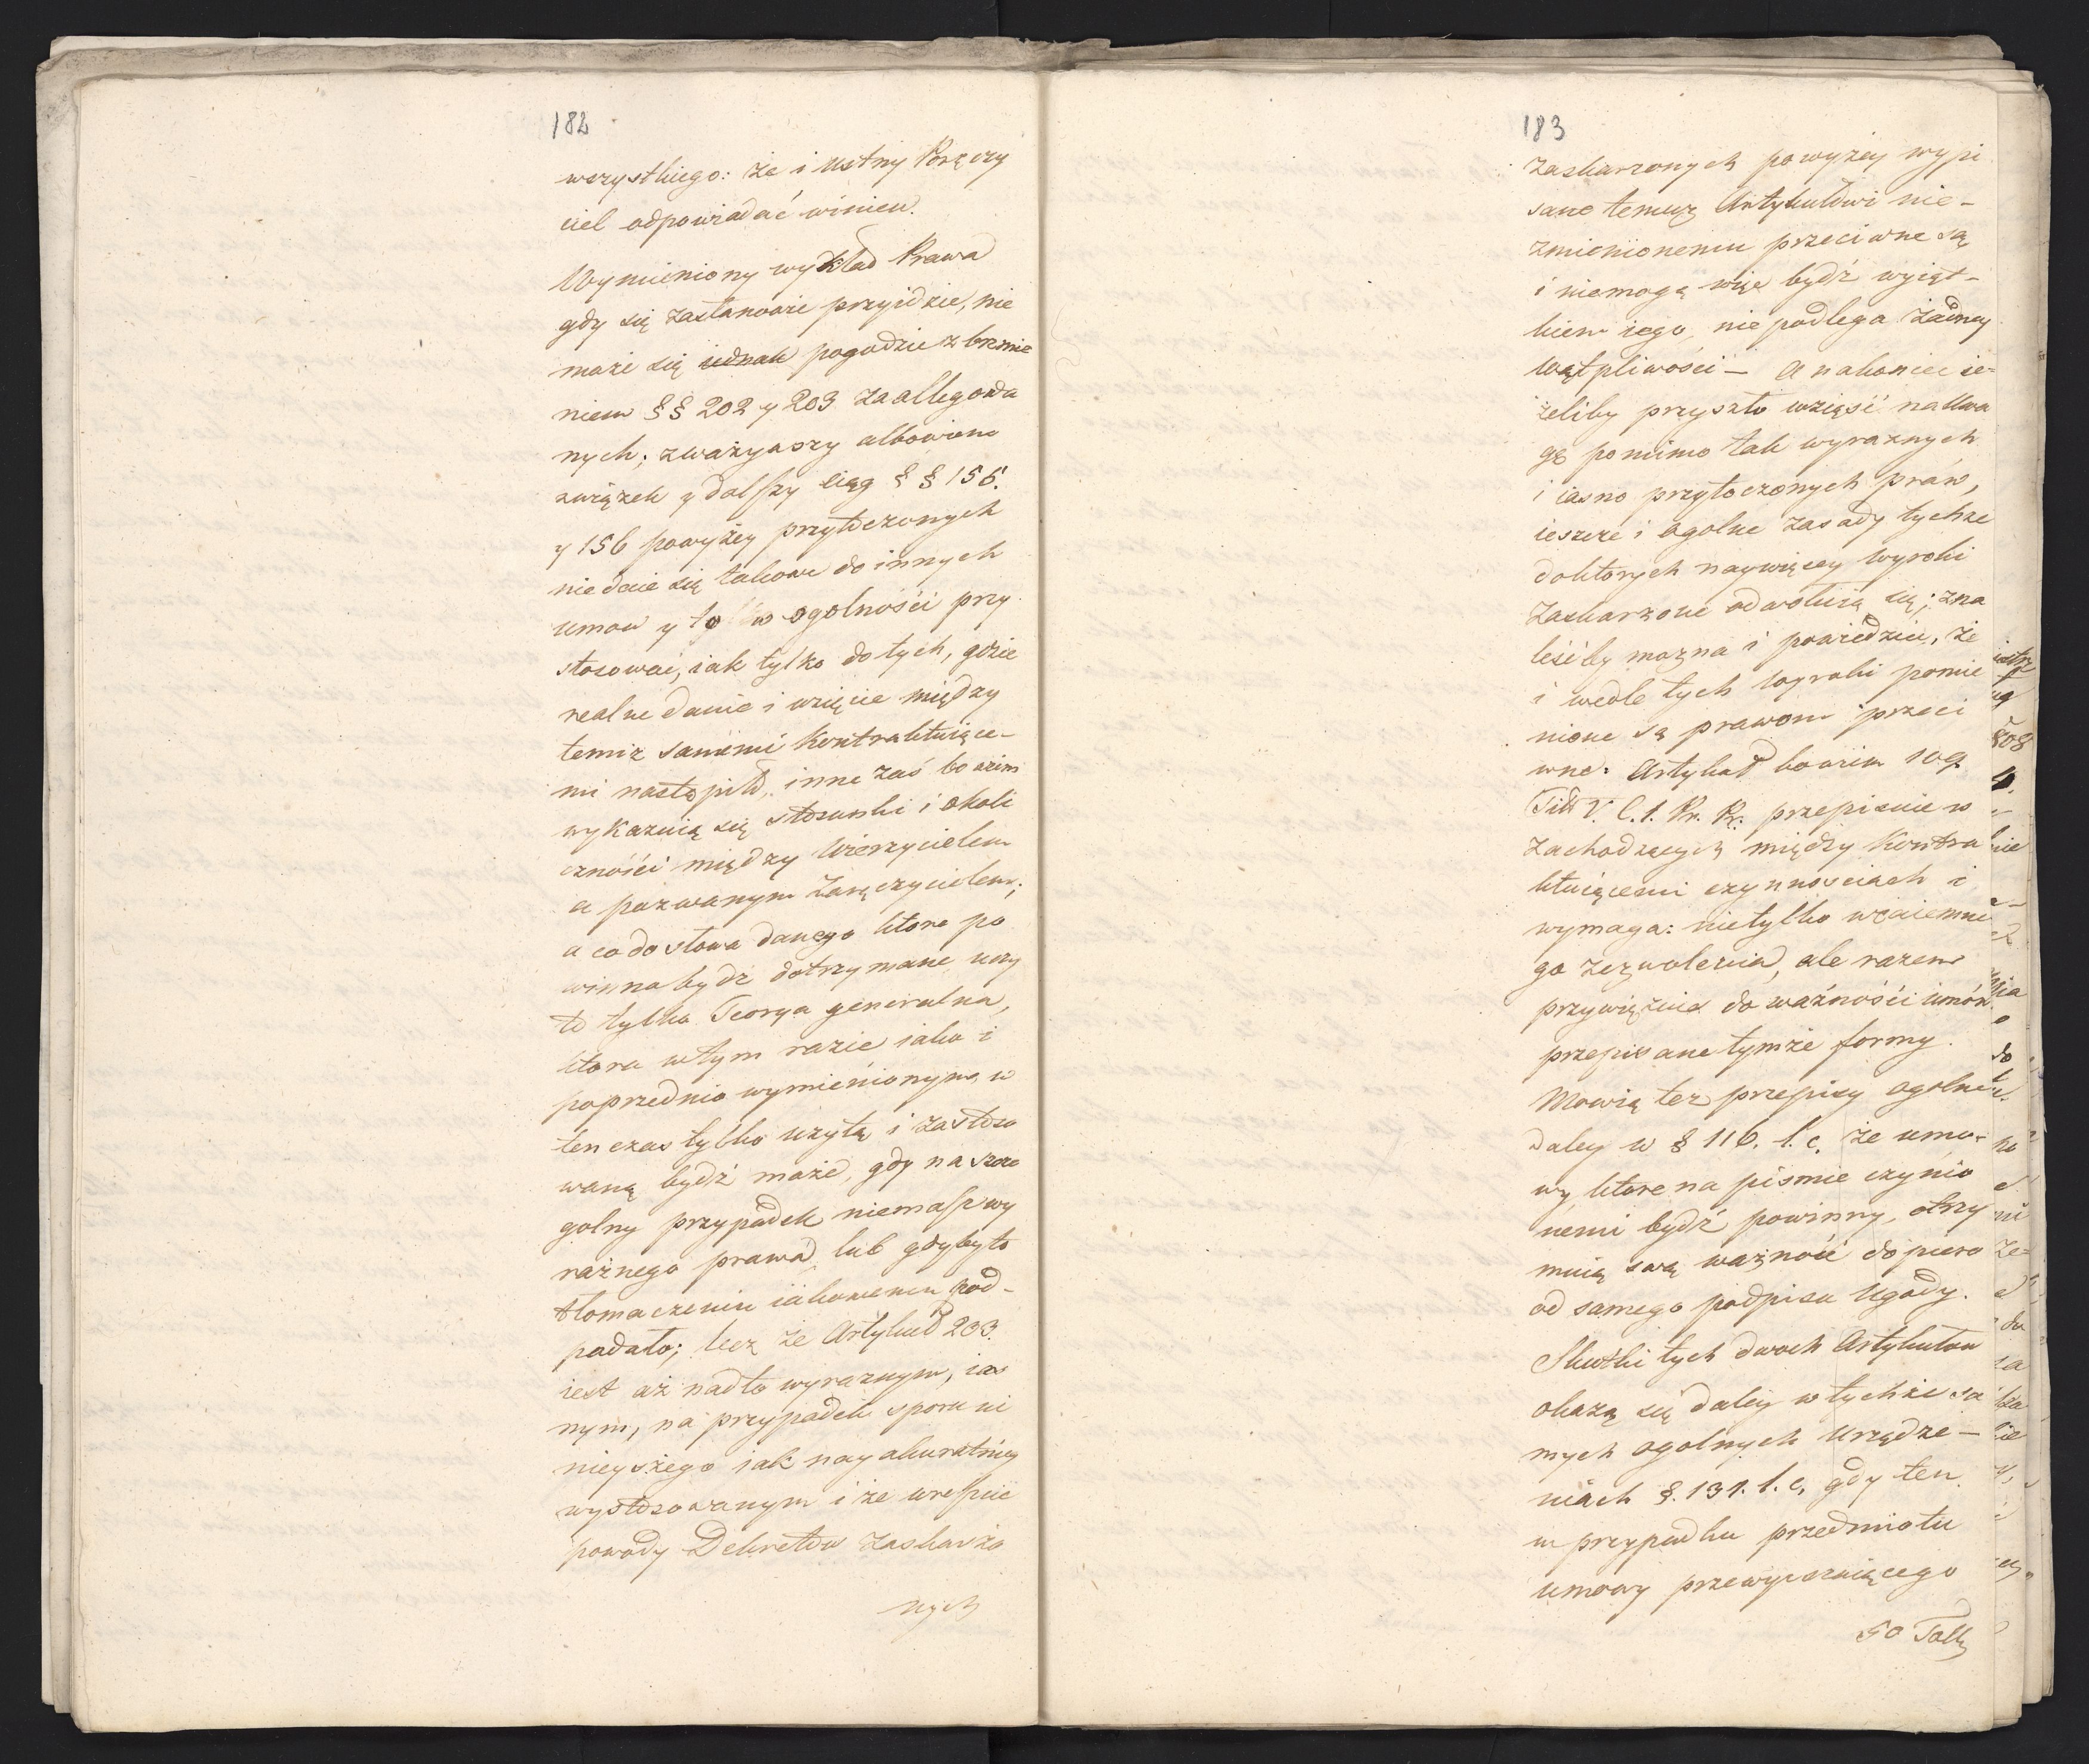 182
wszystkiego: że i ustny Poręczy
ciel odpowiadać winien.
Wymieniony wykład Prawa
gdy się zastanowić przyidzie, nie
może się iednak pogodzić z brzmie
niem §§ 202 y 203 zaallegowa
nych; zważywszy albowiem
związek y dalszy ciąg §§ 155.
y 156 powyżey przytoczonych
nie daie się takowe do innych
umow y to w ogolności przy
stosować, iak tylko do tych, gdzie
realne danie i wzięcie między
temiż samemi Kontraktuiące-
mi nastąpiło, inne zaś bowiem
wykazuią się stosunki i okoli
czności między Wierzycielem
a pozwanym Zaręczycielem;
a co do słowa danego ktore po
winno bydź dotrzymane uczy
to tylko Teorya generalna,
ktora w tym razie iako i
poprzednio wymienionym w
ten czas tylko użytą i zastoso
waną bydź może, gdy na szcze
golny przypadek niemasz wy
raźnego prawa, lub gdyby to
tłomaczeniu iakowemu pod-
padało; lecz że Artykuł 203.
iest aż nadto wyraznym, ias
nym, na przypadek sporu ni
nieyszego iak nayakuratniey
wystosowanym i że wreszcie
powody Dekretów zaskarżo
nych
183
Zaskarżonych powyżey wypi
sane temuż Artykułowi nie-
zmienionemu przeciwne są
i niemogą więc bydź wyiąt-
kiem iego, nie podlega żadney
wątpliwości - A nakoniec ie-
żeliby przyszło wziąść na uwa
gę pomimo tak wyraznych
i iasno przytoczonych praw,
ieszcze i ogolne zasady tychże
do ktorych naywięcey wyroki
Zaskarżone odwołuią się; zna
leść by można i powiedzieć, że
i wedle tych wyroki pomie
nione są prawom przeci
wne. Artykuł bowiem 109
Tit V. C. 1. Pr. Pr. przepisuie w
zachodzących między Kontra
ktuiącemi czynnościach i
wymaga: nietylko wzaiemne
go zezwolenia, ale razem
przywięzuie do ważności umów
przepisane tymże formy.
Mowią też przepisy ogolne
daley w § 116. l. c. że umo-
wy ktore na pismie czynio
nemi bydź powinny, otrzy
muią swą ważność dopiero
od samego podpisu Ugody.
Skutki tych dwoch Artykułow
okażą się daley w tychże sa
mych ogolnych Urządze-
niach §. 131. l. c, gdy ten
w przypadku przedmiotu
umowy przewyższaiącego
50 Tall